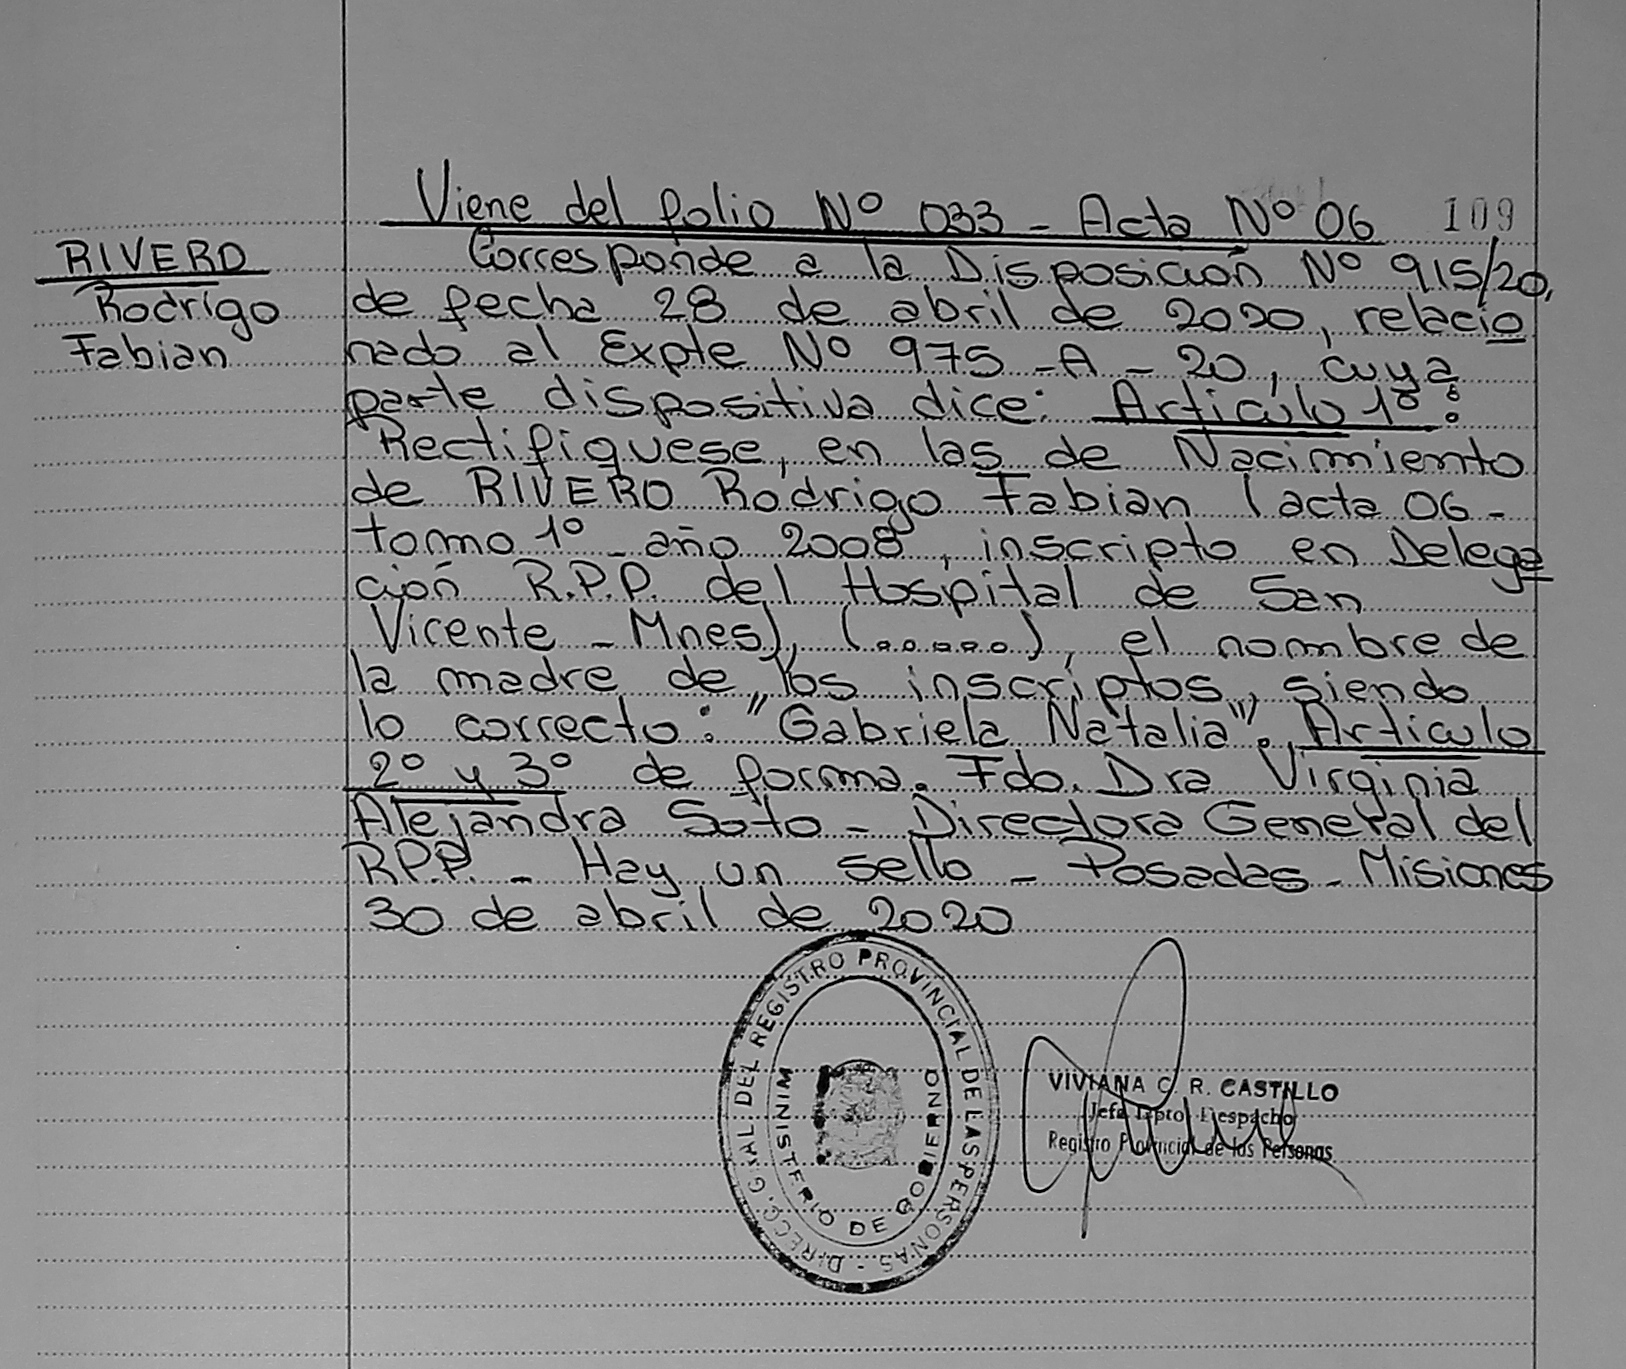 Viene del folio Nº 033 - Acta Nº 06 109
RIVERO
Rodrigo
Fabian
Corresponde a la Disposición Nº 915/20,
de fecha 28 de abril de 2020, relacio
nado al Expte Nº 975 - A - 20, cuya
parte dispositiva dice: Artículo 1º:
Rectifiquese, en las de Nacimiento
de RIVERO Rodrigo Fabian (acta 06 -
tomo 1º - año 2008, inscripto en Delega
ción R.P.P. del Hospital de San
Vicente - Mnes), (......), el nombre de
la madre de los inscriptos, siendo
lo correcto: "Gabriela Natalia". Artículo
2º y 3º de forma. Fdo. Dra Virginia
Alejandra Soto - Directora General del
R.P.P. - Hay un sello - Posadas - Misiones
30 de abril de 2020
DIRECC. GRAL. DEL REGISTRO PROVINCIAL DE LAS PERSONAS.-
MINISTERIO DE GOBIERNO
VIVIANA C. R. CASTILLO
Jefa Dpto. Despacho
Registro Provincial de las Personas